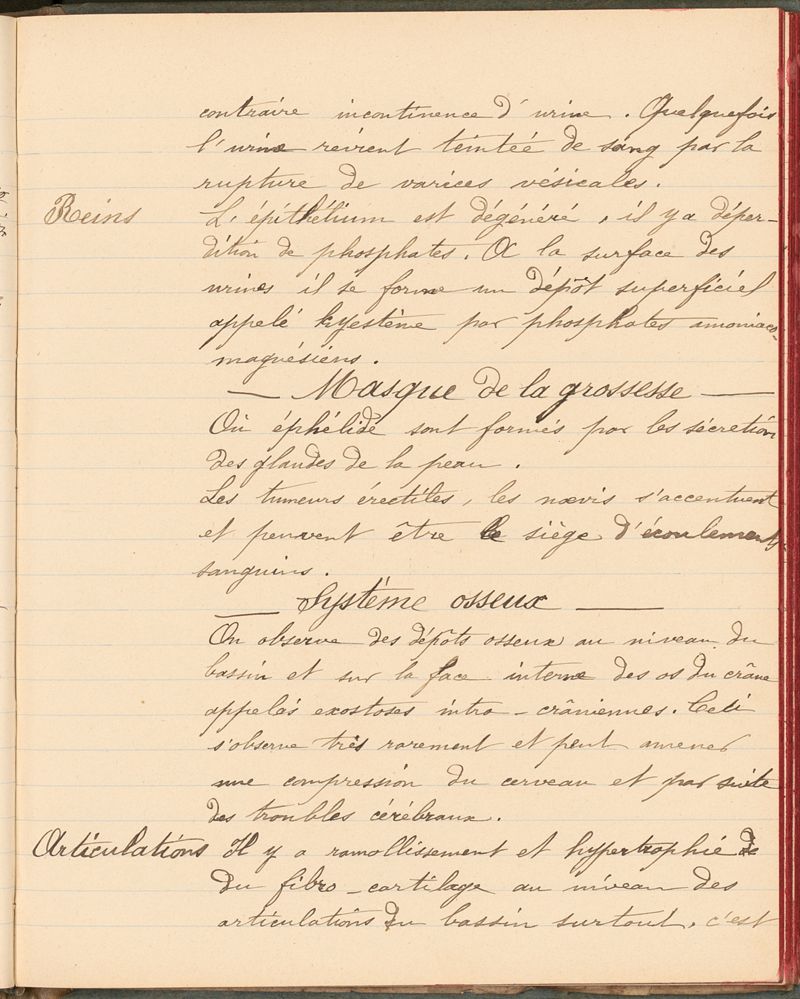 contraire incontinence d'urine. Quelquefois
l'urine revient teintée de sang par la
rupture de varices vésicales.
Reins L'épithélium est dégénéré, il y a déper-
dition de phosphates. A la surface des
urines il se forme un dépôt superficiel
appelé kyestène par phosphates amoniaco-
magnésiens.
— Masque de la grossesse —
Où éphélide sont formés par les sécrétion
des glandes de la peau.
Les tumeurs érectiles, les nœvis s'accentuent
et peuvent être le siège d'écoulements
sanguins.
— Système osseux —
On observe des dépôts osseux au niveau du
bassin et sur la face interne des os du crâne
appelés exostoses intra-crâniennes. Celà
s'observe très rarement et peut amener
une compression du cerveau et par suite
des troubles cérébraux.
Articulations Il y a ramollissement et hypertrophie de
du fibro-cartilage au niveau des
articulations du bassin surtout, c'est